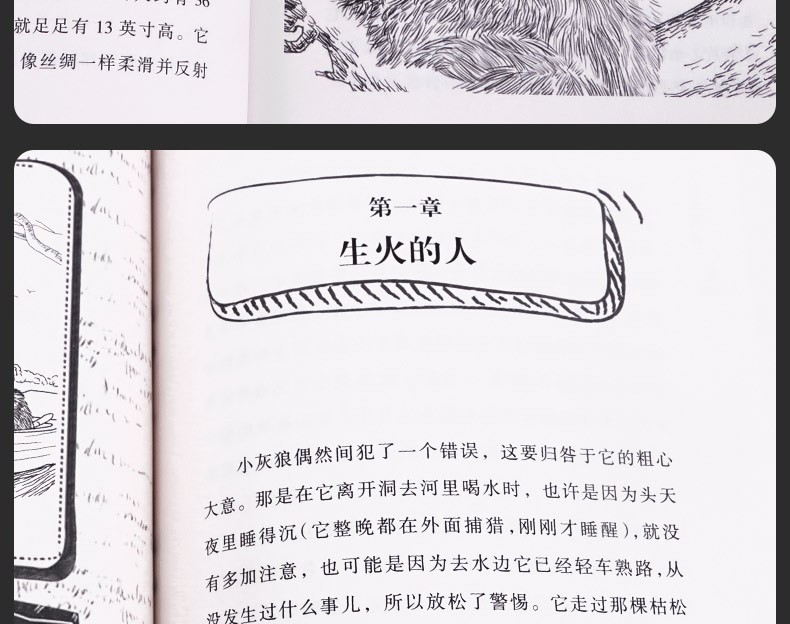 就足足有 13 英寸高。它
像丝绸一样柔滑并反射
第一章
生火的人
小灰狼偶然间犯了一个错误，这要归咎于它的粗心
大意。那是在它离开洞去河里喝水时，也许是因为头天
夜里睡得沉(它整晚都在外面捕猎,刚刚才睡醒),就没
有多加注意，也可能是因为去水边它已经轻车熟路,从
没发生过什么事儿，所以放松了警惕。它走过那棵枯松